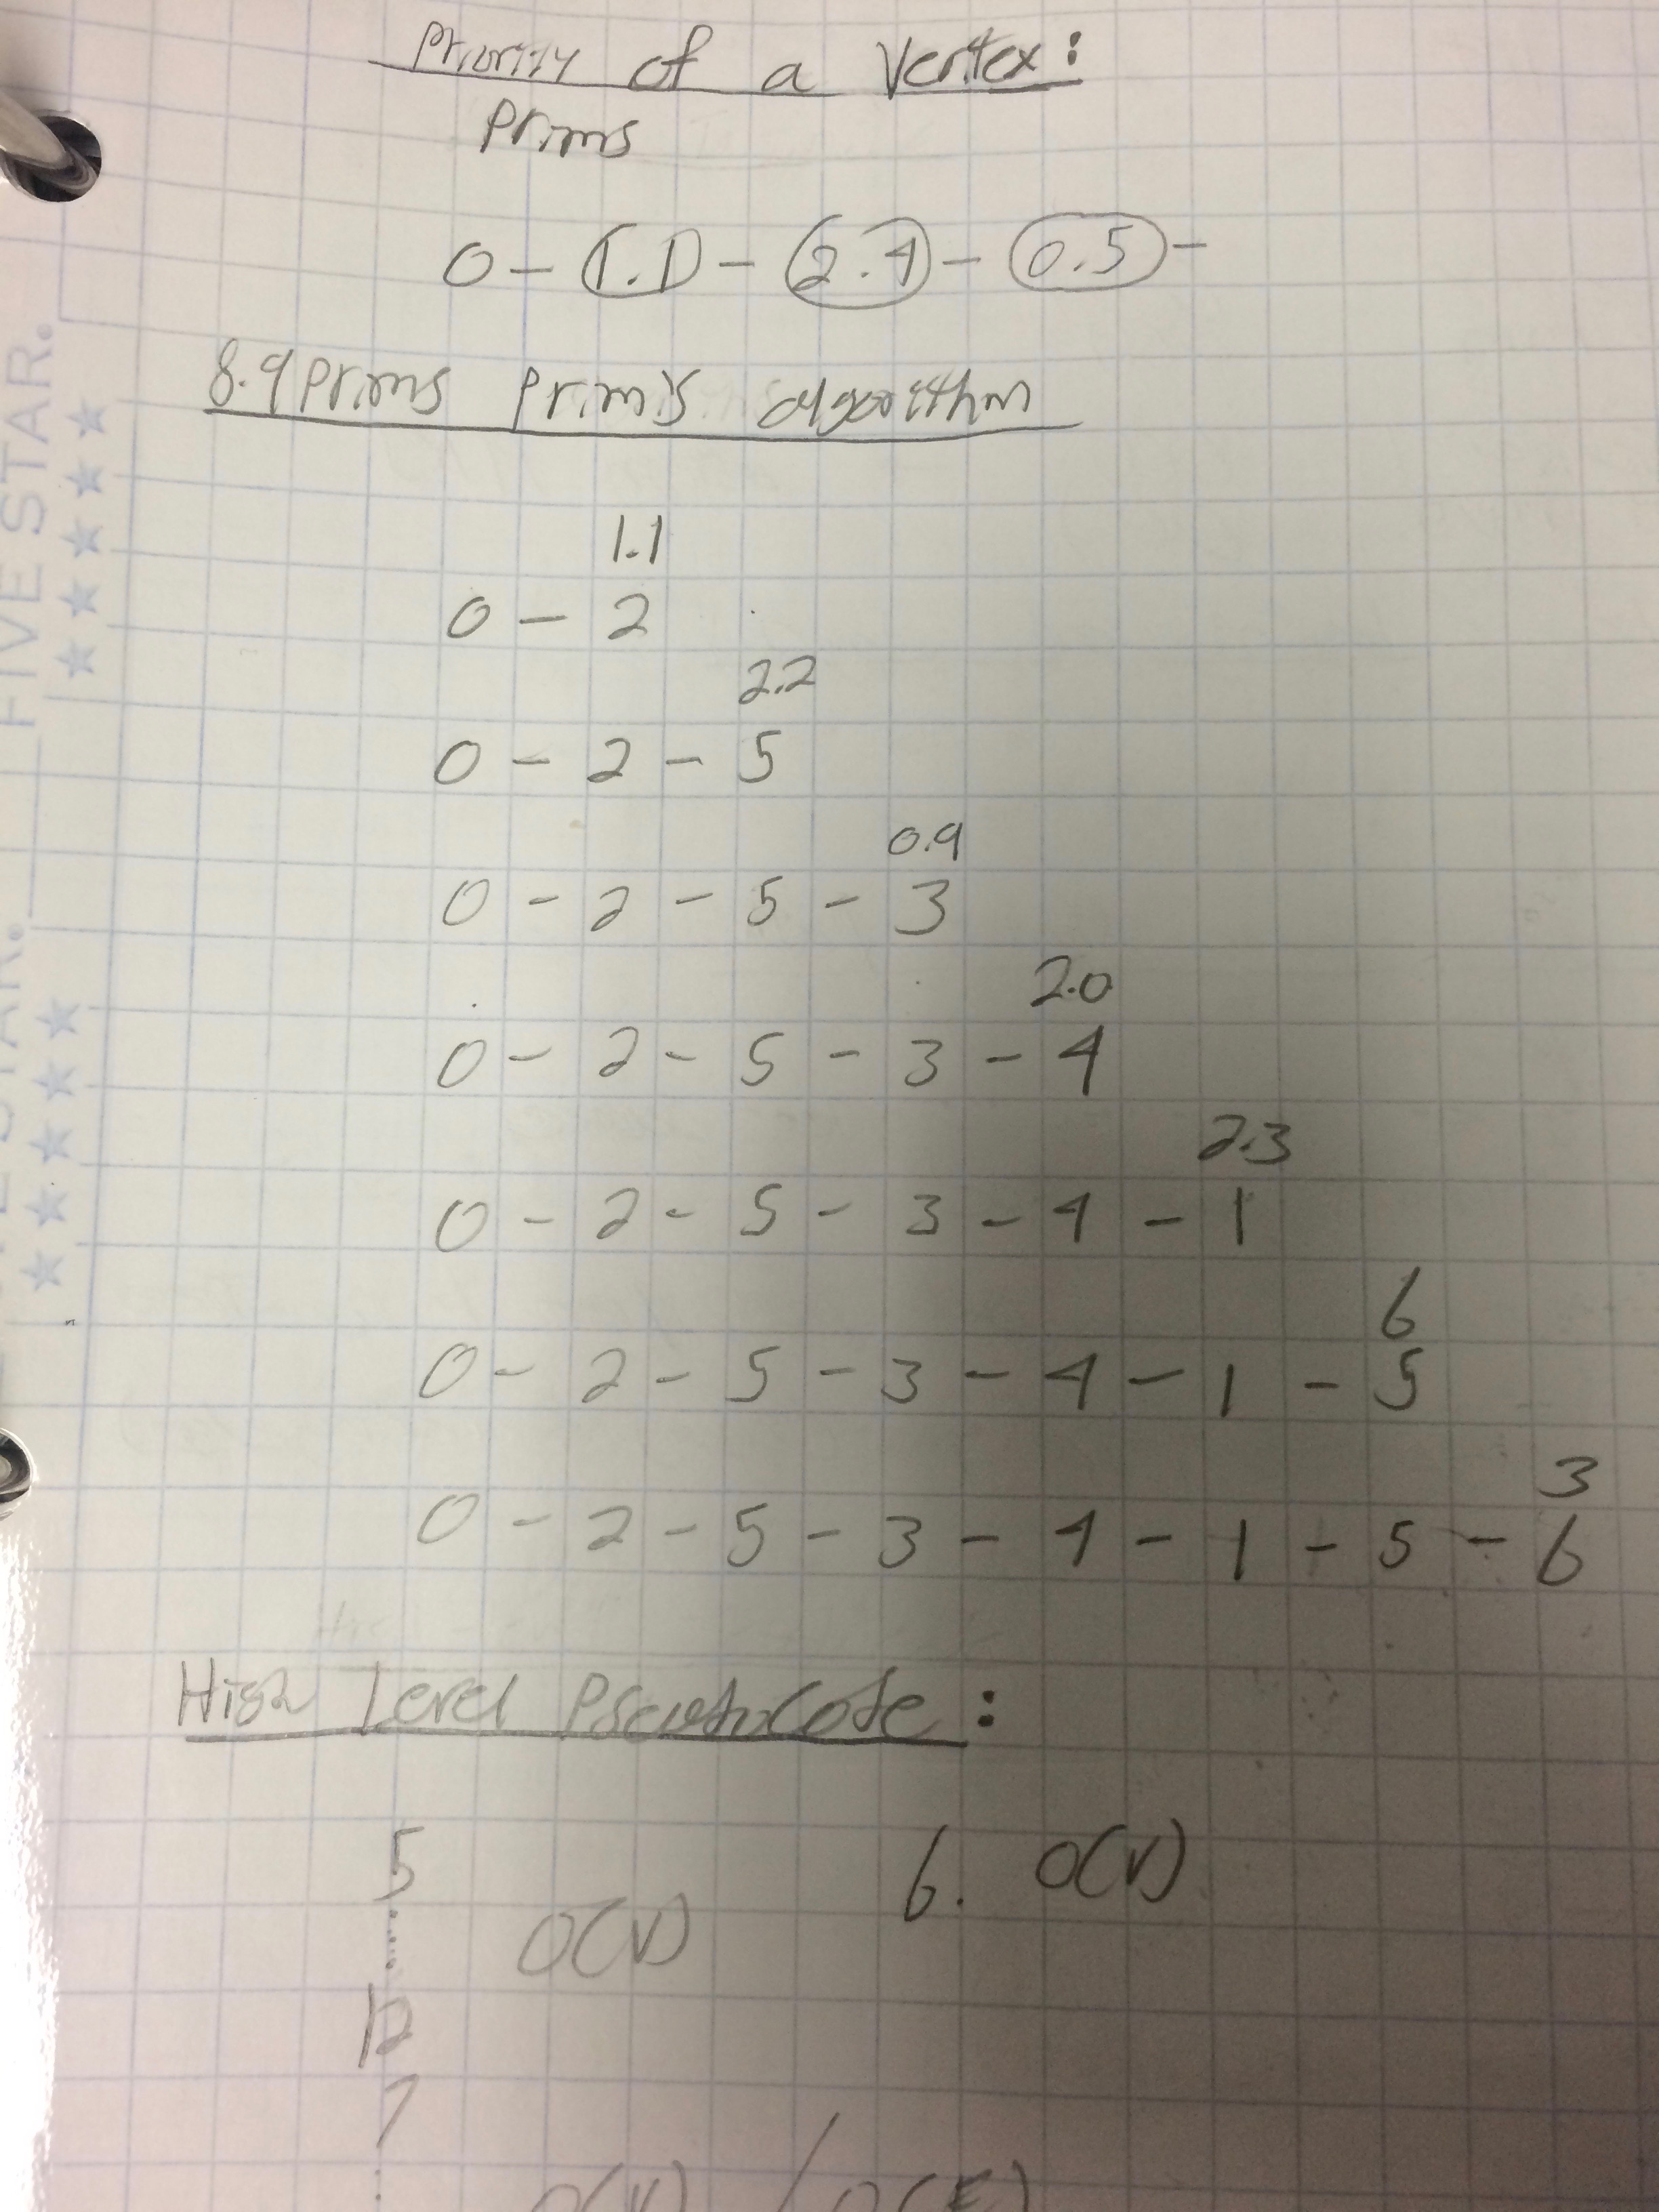 Priority of a Vertex:
Prims
0 - 1.1 - 2.4 - 0.5 -
8.9 Prims Prim's algorithm
1.1
0 - 2
2.2
0 - 2 - 5
0.9
0 - 2 - 5 - 3
2.0
0 - 2 - 5 - 3 - 4
2.3
0 - 2 - 5 - 3 - 4 - 1
6
0 - 2 - 5 - 3 - 4 - 1 - 5
3
0 - 2 - 5 - 3 - 4 - 1 - 5 - 6
High Level Pseudocode:
5 6. O(V)
O(V)
12
7
O(V) / O(E)
FIVE STAR.
FIVE STAR.